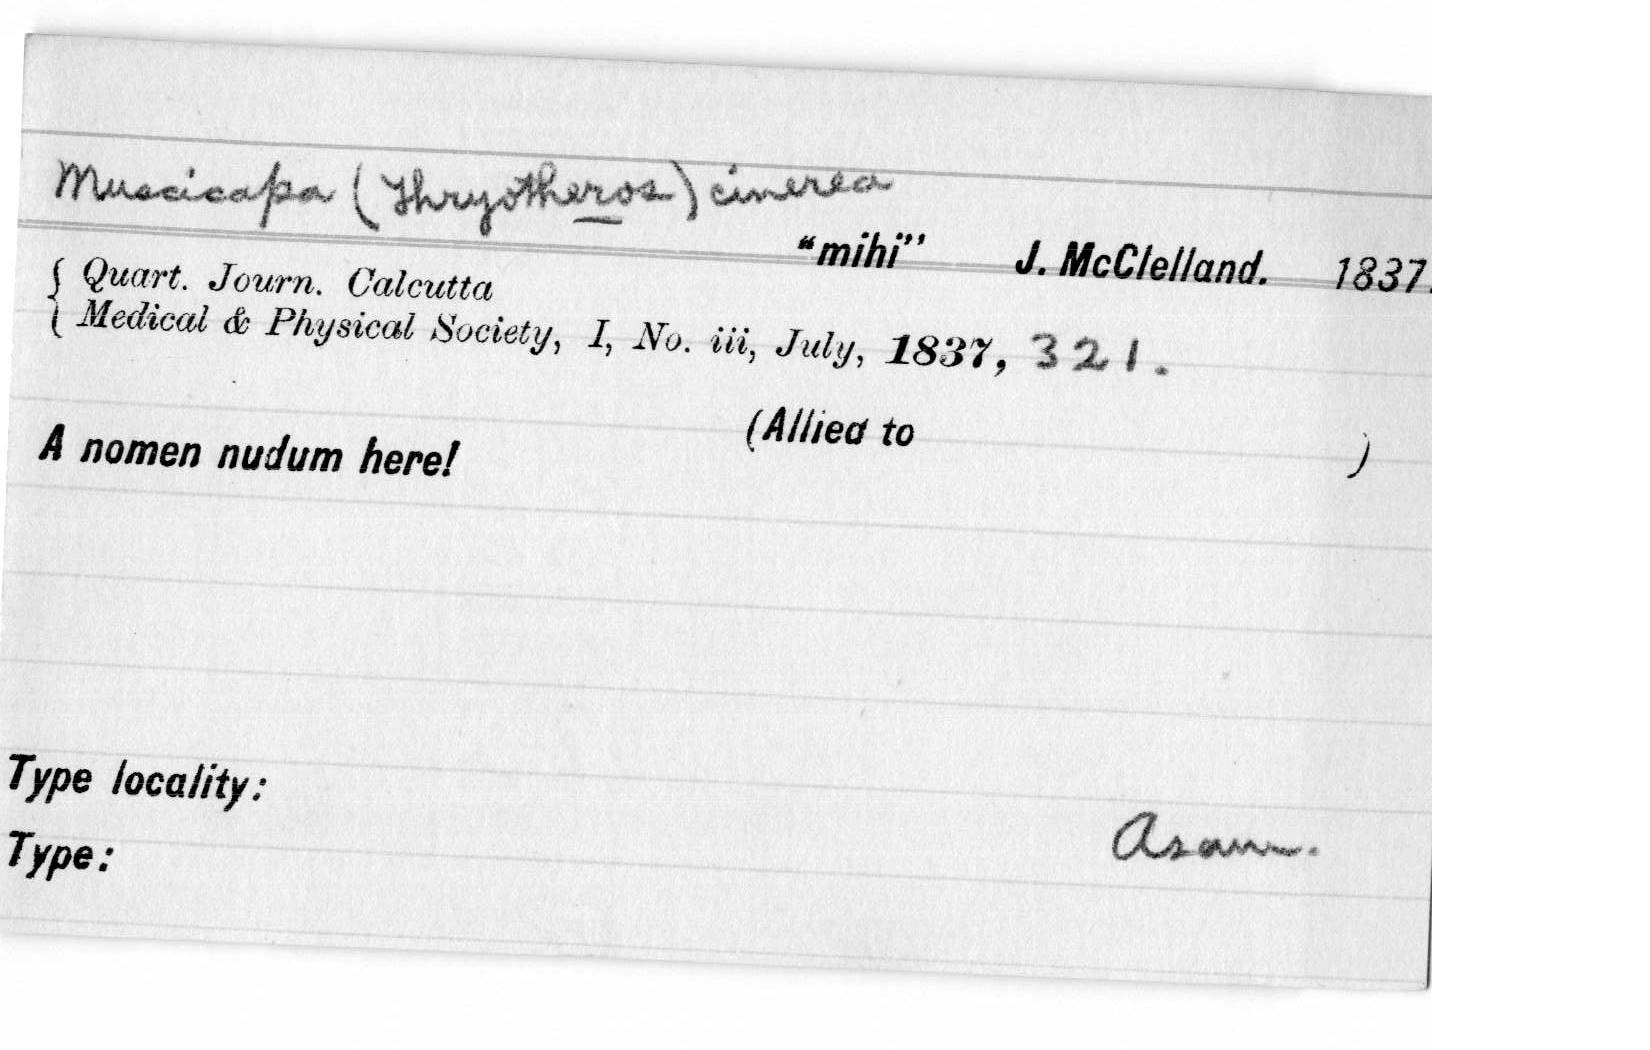 Muscicapa (Thryotheros) cinerea
"mihi" J. McClelland. 1837.
Quart. Journ. Calcutta
Medical & Physical Society, I, No. iii, July, 1837, 321.
(Allied to )
A nomen nudum here!
Type locality:
Asam.
Type: